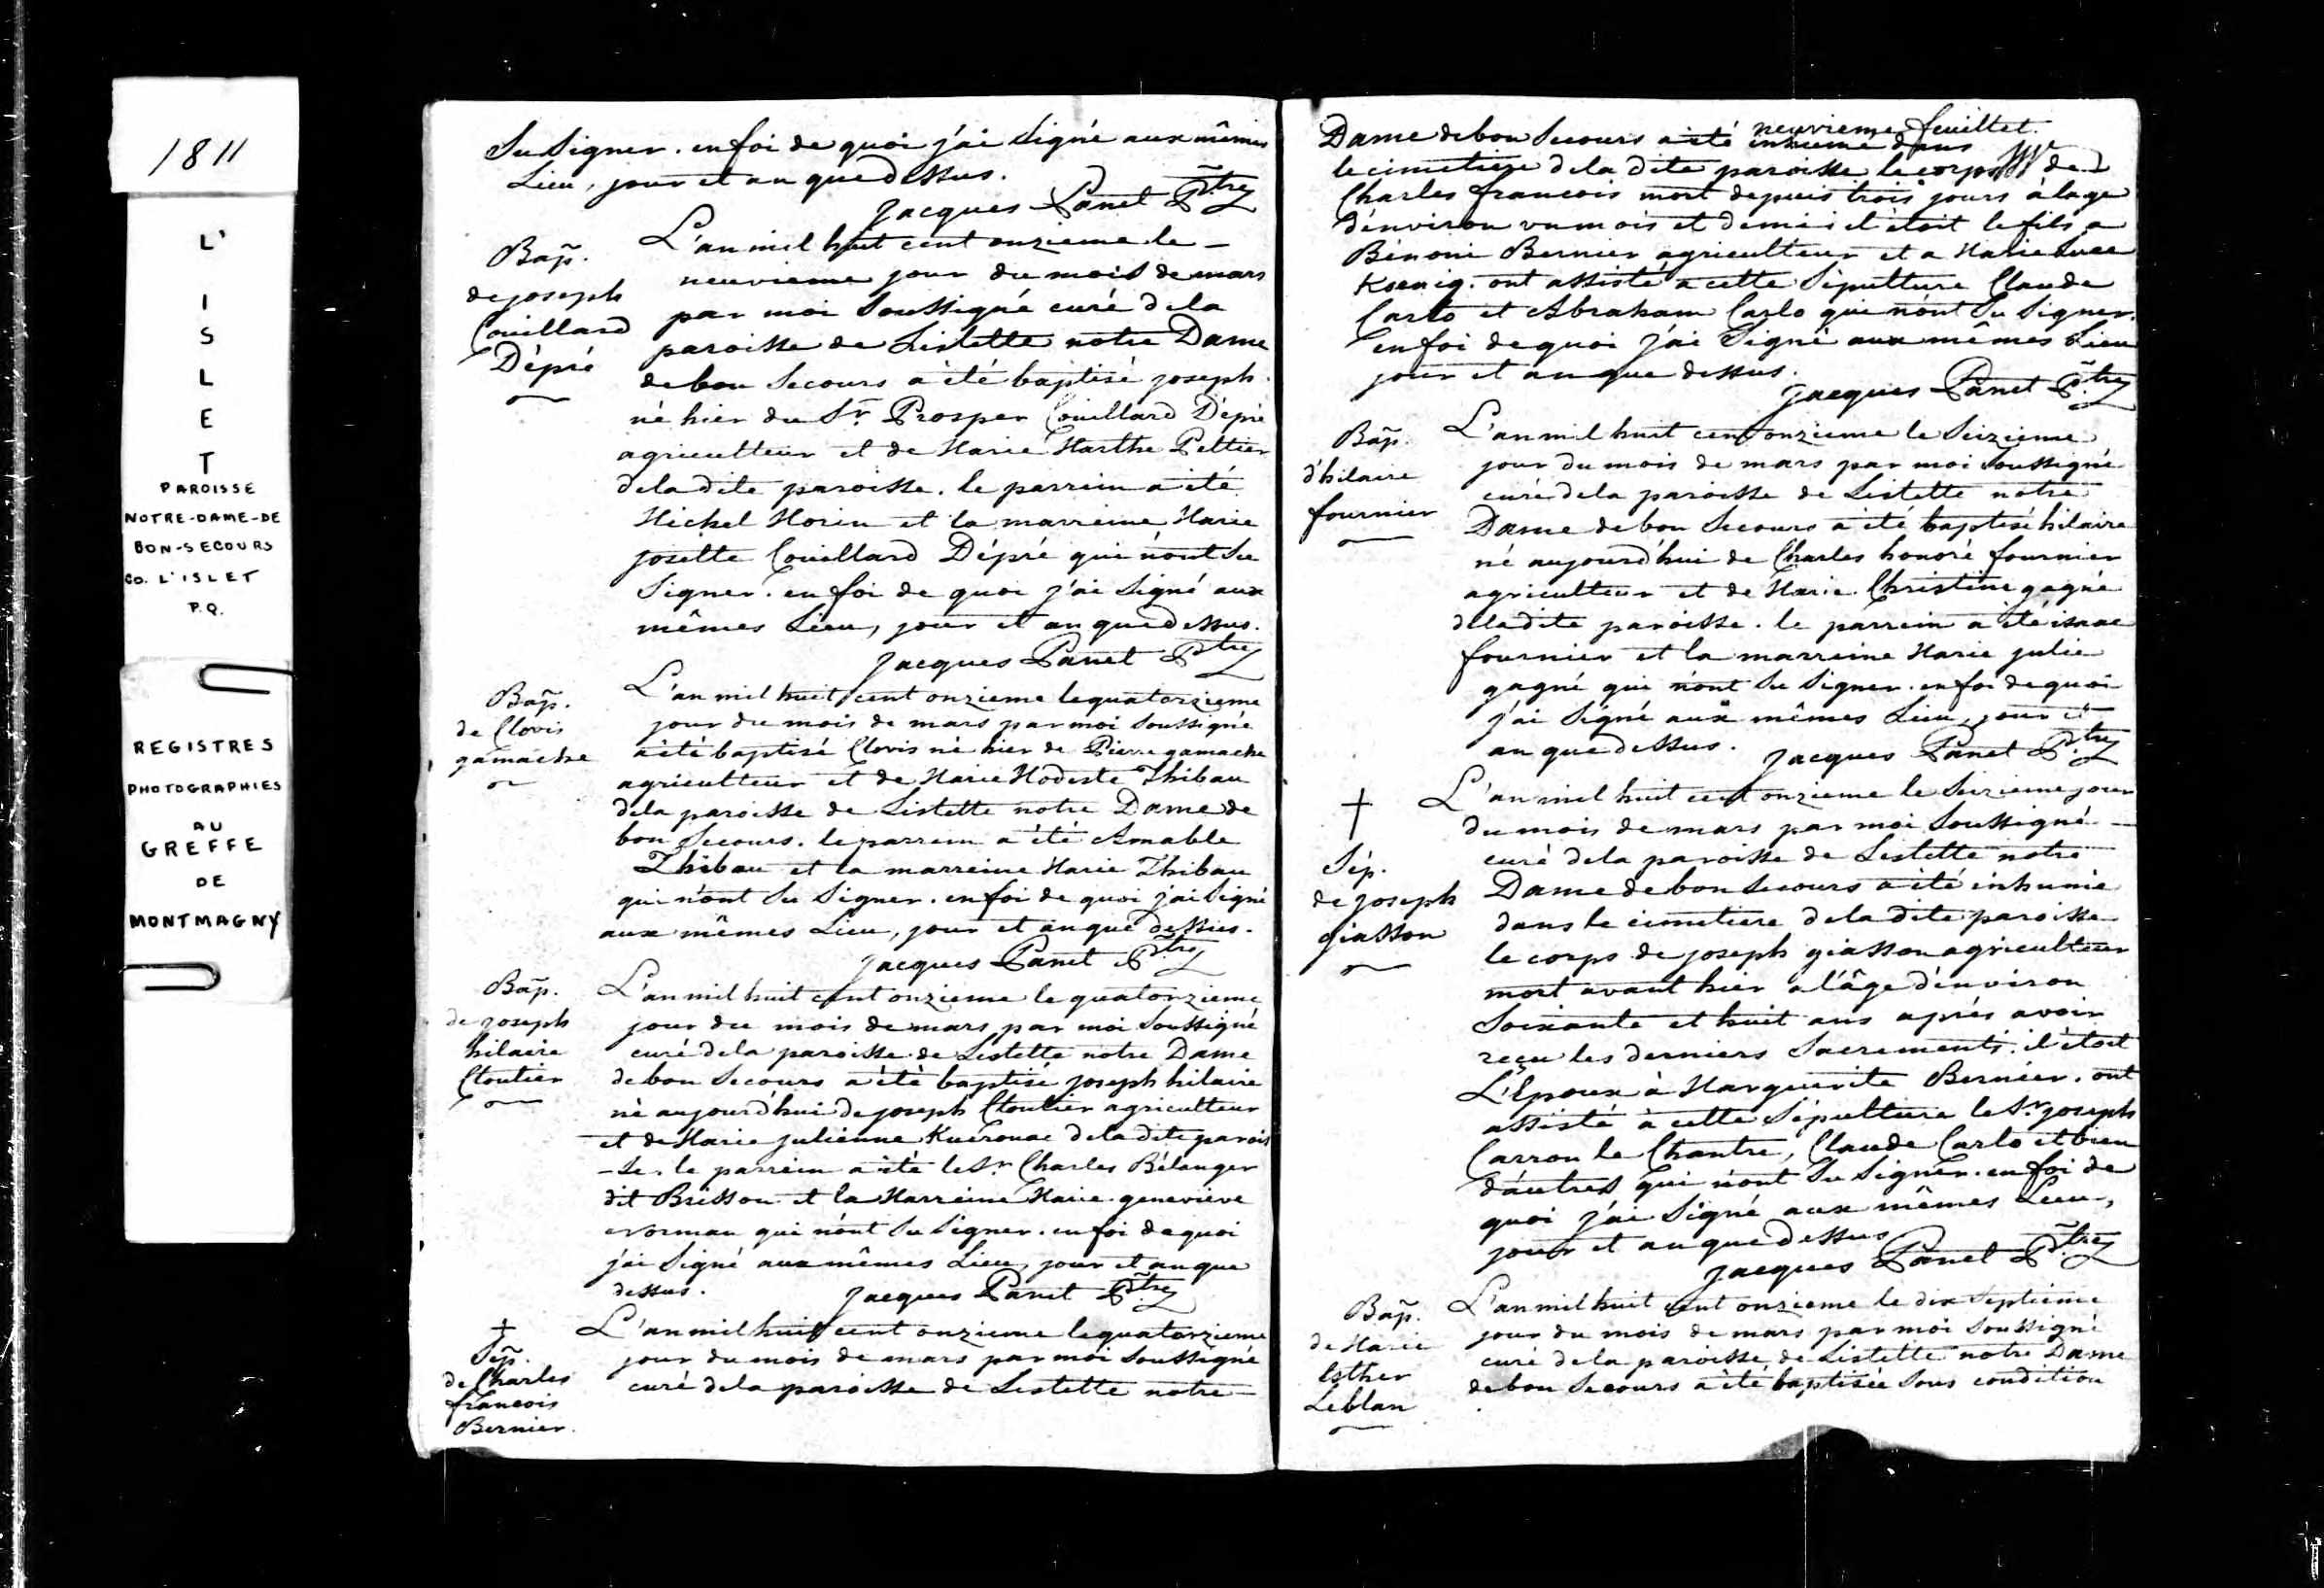 1811
L'
I
S
L
E
T
PAROISSE
NOTRE-DAME-DE
BON-SECOURS
CO. L'ISLET
P.Q.
REGISTRES
PHOTOGRAPHIES
AU
GREFFE
DE
MONTMAGNY
Su Signer. en foi de quoi j'ai Signé aux mêmes
Lieu, jour et an que dessus.
Jacques Panet Ptre
Bap̃.
de joseph
Couillard
Dépré
L'an mil huit cent onzieme le –
neuvieme jour du mois de mars
par moi Soussigné curé de la
paroisse de Lislette notre Dame
de bon Secours a été baptisé joseph
né hier du Sr. Prosper Couillard Dépré
agriculteur et de Marie Marthe Peltier
de la dite paroisse. le parrein a été
Michel Morin et la marreine Marie
josette Couillard Dépré qui n'ont Su
Signer. en foi de quoi j'ai Signé aux
mêmes Lieu, jour et an que dessus.
Jacques Panet Ptre
Bap̃.
de Clovis
gamache
L'an mil huit cent onzieme le quatorzieme
jour du mois de mars par moi Soussigné
a été baptisé Clovis né hier de Pierre gamache
agriculteur et de Marie Modeste Thibau
de la paroisse de Lislette notre Dame de
bon Secours. le parrein a été Amable
Thibau et la marreine Marie Thibau
qui n'ont Su Signer. en foi de quoi j'ai Signé
aux mêmes Lieu, jour et an que dessus.
Jacques Panet Ptre
Bap̃.
de joseph
hilaire
Cloutier
L'an mil huit cent onzieme le quatorzieme
jour du mois de mars par moi Soussigné
curé de la paroisse de Lislette notre Dame
de bon Secours a été baptisé joseph hilaire
né aujourd'hui de joseph Cloutier agriculteur
et de Marie julienne Kuérouac de la dite parois
-se. le parrein a été le Sr. Charles Bélanger
dit Brisson et la Marreine Marie geneviève
Norman qui n'ont Su Signer. en foi de quoi
j'ai Signé aux mêmes Lieu, jour et an que
dessus. Jacques Panet Ptre
†
Sep̃.
de Charles
francois
Bernier.
L'an mil huit cent onzieme le quatorzieme
jour du mois de mars par moi Soussigné
curé de la paroisse de Lislette notre –
neuvieme feuillet.
Dame de bon Secours a été inhumé dans
le cimetiere de la dite paroisse le corps de
Charles francois mort depuis trois jours à lage
d'environ un mois et demi: il étoit le fils a
Bénoni Bernier agriculteur et a Marie Luce
Koenig. ont assisté a cette Sépulture Claude
Carlo et Abraham Carlo qui n'ont Su Signer.
en foi de quoi j'ai Signé aux mêmes Lieu
jour et an que dessus.
Jacques Panet Ptre
Bap̃.
d'hilaire
fournier
L'an mil huit cent onzieme le Seizieme
jour du mois de mars par moi Soussigné
curé de la paroisse de Lislette notre
Dame de bon Secours a été baptisé hilaire
né aujourd'hui de Charles honoré fournier
agriculteur et de Marie Christine gagné
de la dite paroisse. le parrein a été isaac
fournier et la marreine Marie julie
gagné qui n'ont Su Signer. en foi de quoi
j'ai Signé aux mêmes Lieu, jour et
an que dessus. Jacques Panet Ptre
†
Sép.
de joseph
giasson
L'an mil huit cent onzieme le Seizieme jour
du mois de mars par moi Soussigné –
curé de la paroisse de Lislette notre
Dame de bon Secours a été inhumé
dans le cimetiere de la dite paroisse
le corps de joseph giasson agriculteur
mort avant hier a l'âge d'environ
Soixante et huit ans aprés avoir
reçu les derniers Sacrements. il étoit
L'Epoux à Marguerite Bernier. ont
assisté à cette Sépulture le Sr. joseph
Carron le Chantre, Claude Carlo et bien
d'autres qui n'ont Su Signer. en foi de
quoi j'ai Signé aux mêmes Lieu,
jour et an que dessus
Jacques Panet Ptre
Bap̃.
de Marie
Esther
Leblan
L'an mil huit cent onzieme le dix Septieme
jour du mois de mars par moi Soussigné
curé de la paroisse de Lislette notre Dame
de bon Secours a été baptisée Sous condition